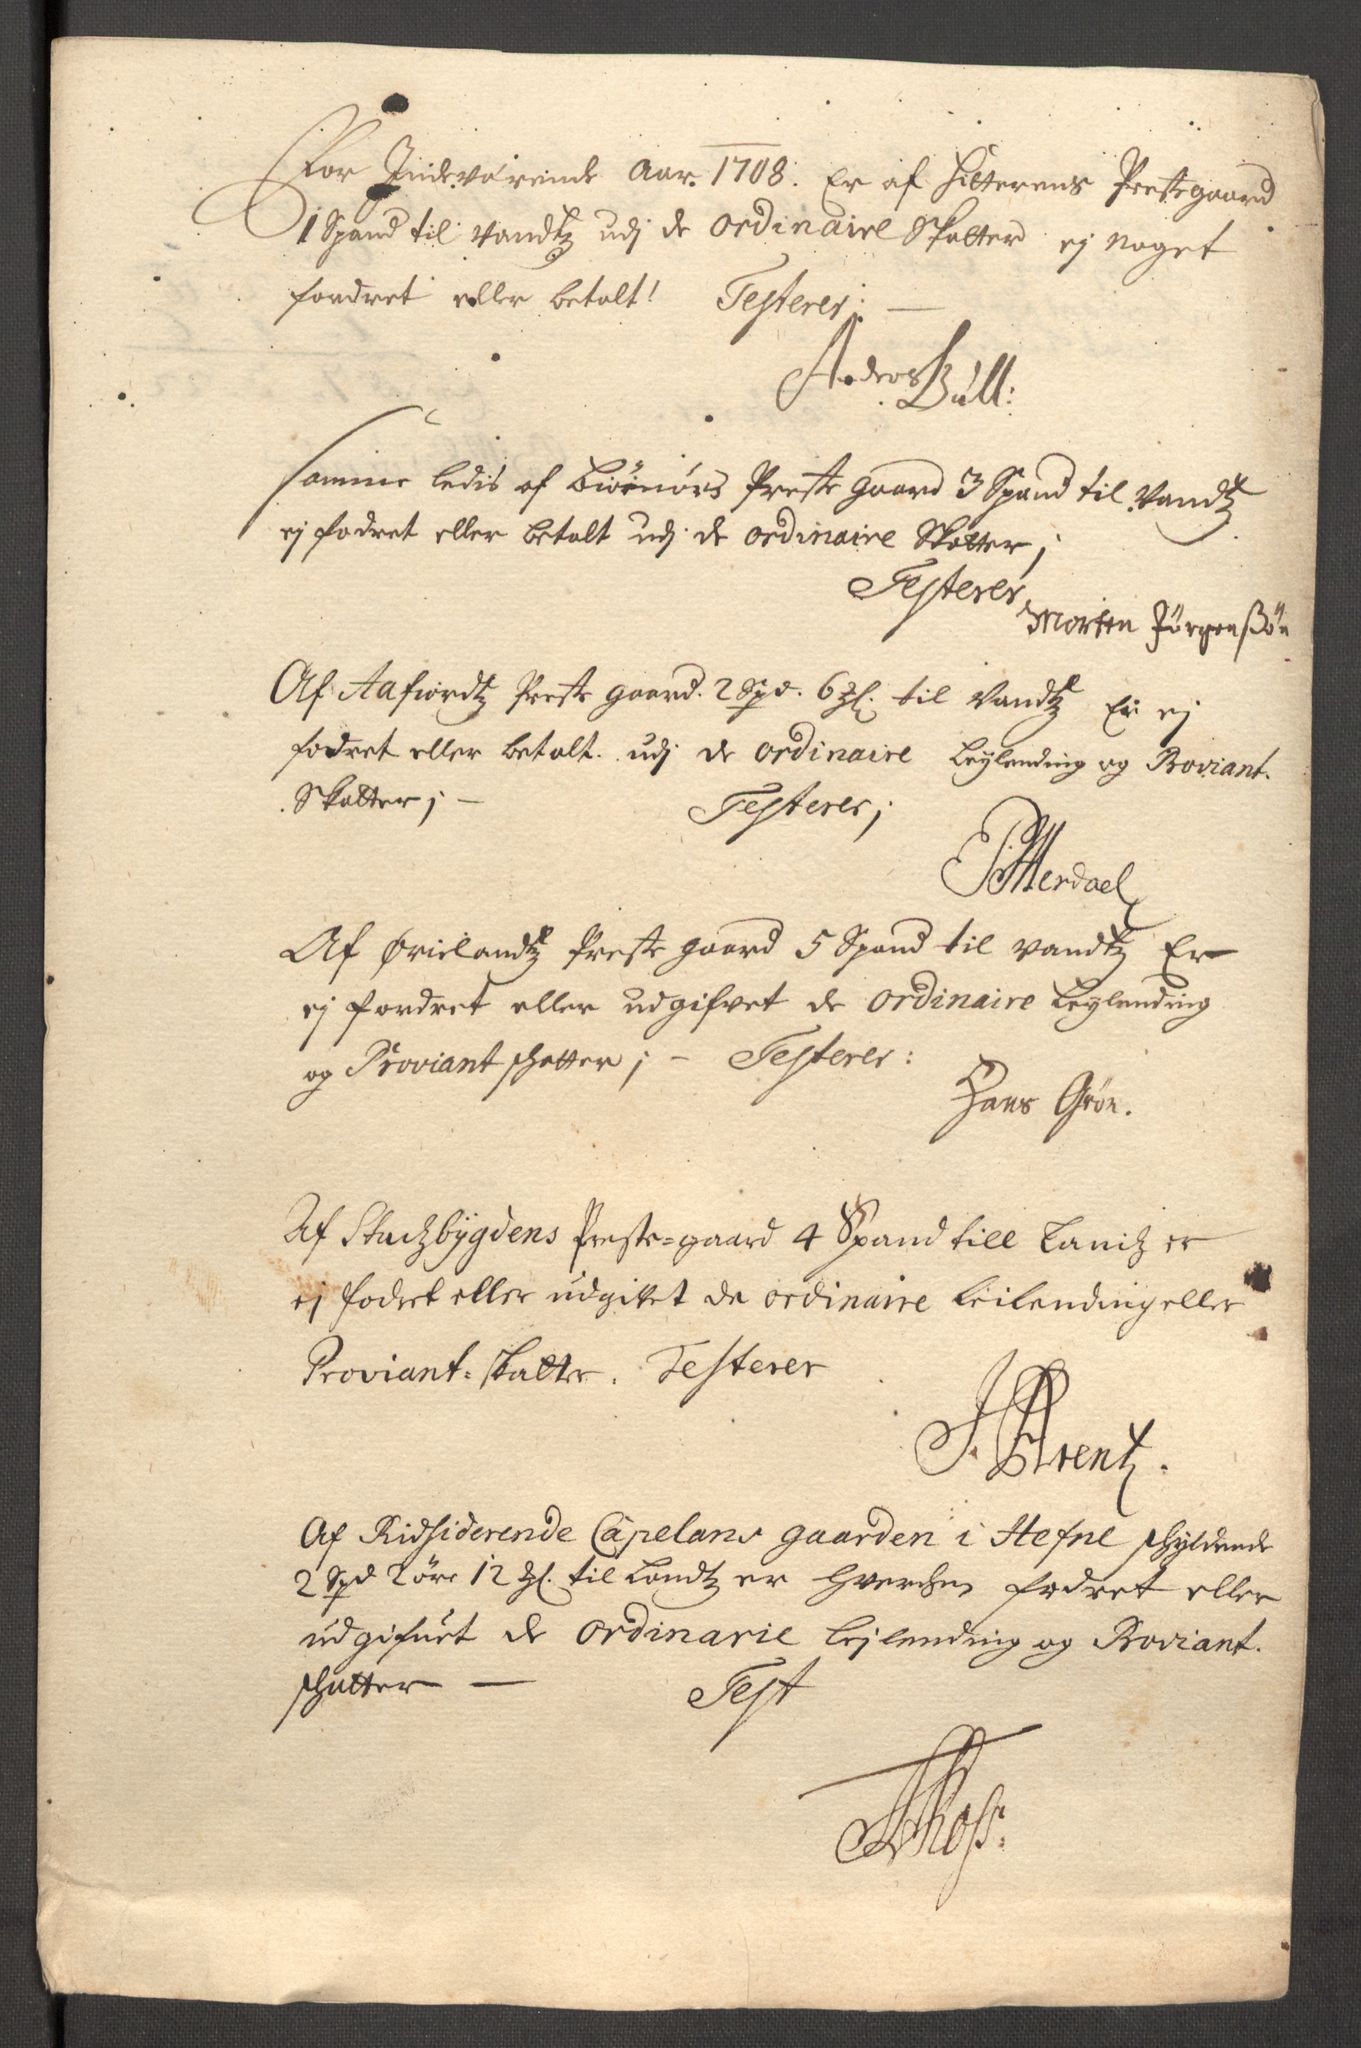 For Indeværende Aar. 1708. Er af Hitterens Prestegaard
1 Spand til Vandtz udj de ordinaire Skatter ej noget
fordret eller betalt! Testerer: —
Anders Bull:
Samme ledis af Biørnørs Preste gaard 3 Spand til Vandtz
ej fodret eller betalt udj de ordinaire Skatter;
Testerer
Morten Jørgenßøn
Af Aafiordtz Preste gaard. 2 Spd. 6 ... til Vandtz Er ej
fodret eller betalt. udj de ordinaire Leylending og Proviant.
Skatter; —
Testerer;
Merdael
Af Ørielandtz Preste gaard 5 Spand til Vandtz Er
ej fordret eller udgifvet de ordinaire Leylending
og Proviant schatter; — Testerer:
Hans Grøn.
Af Stadzbÿgdens Preste=gaard 4 Spand till Landz er
ej fodret eller udgivet de ordinaire Leilending eller
Proviant=skatter. Testerer
Arentz.
Af Ridsiderende Capelans gaarden i Hefne schyldende
2 Spd 2 øre 12 ... til Landtz er hverchen fodret eller
udgifuet de ordinarie Leylending og Proviant.
schatter —
Test
Roß.